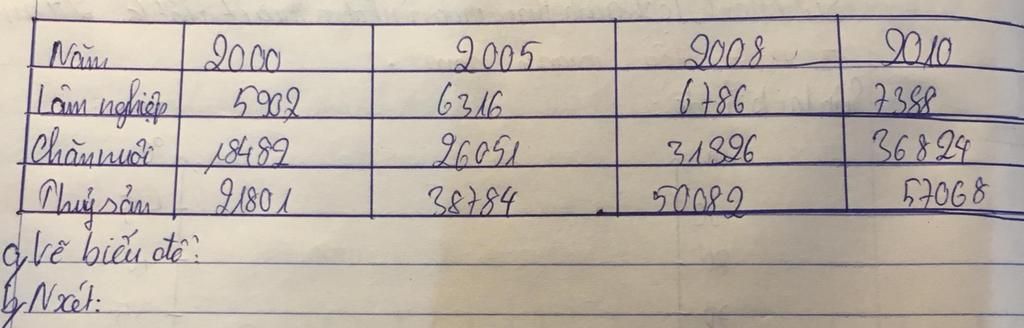 Năm 2000 2005 2008 2010
Lâm nghiệp 5902 6316 6786 7388
Chăn nuôi 18482 26051 31326 36824
Thuỷ sản 21801 38784 50082 57068
a, Vẽ biểu đồ:
b, Nxét: